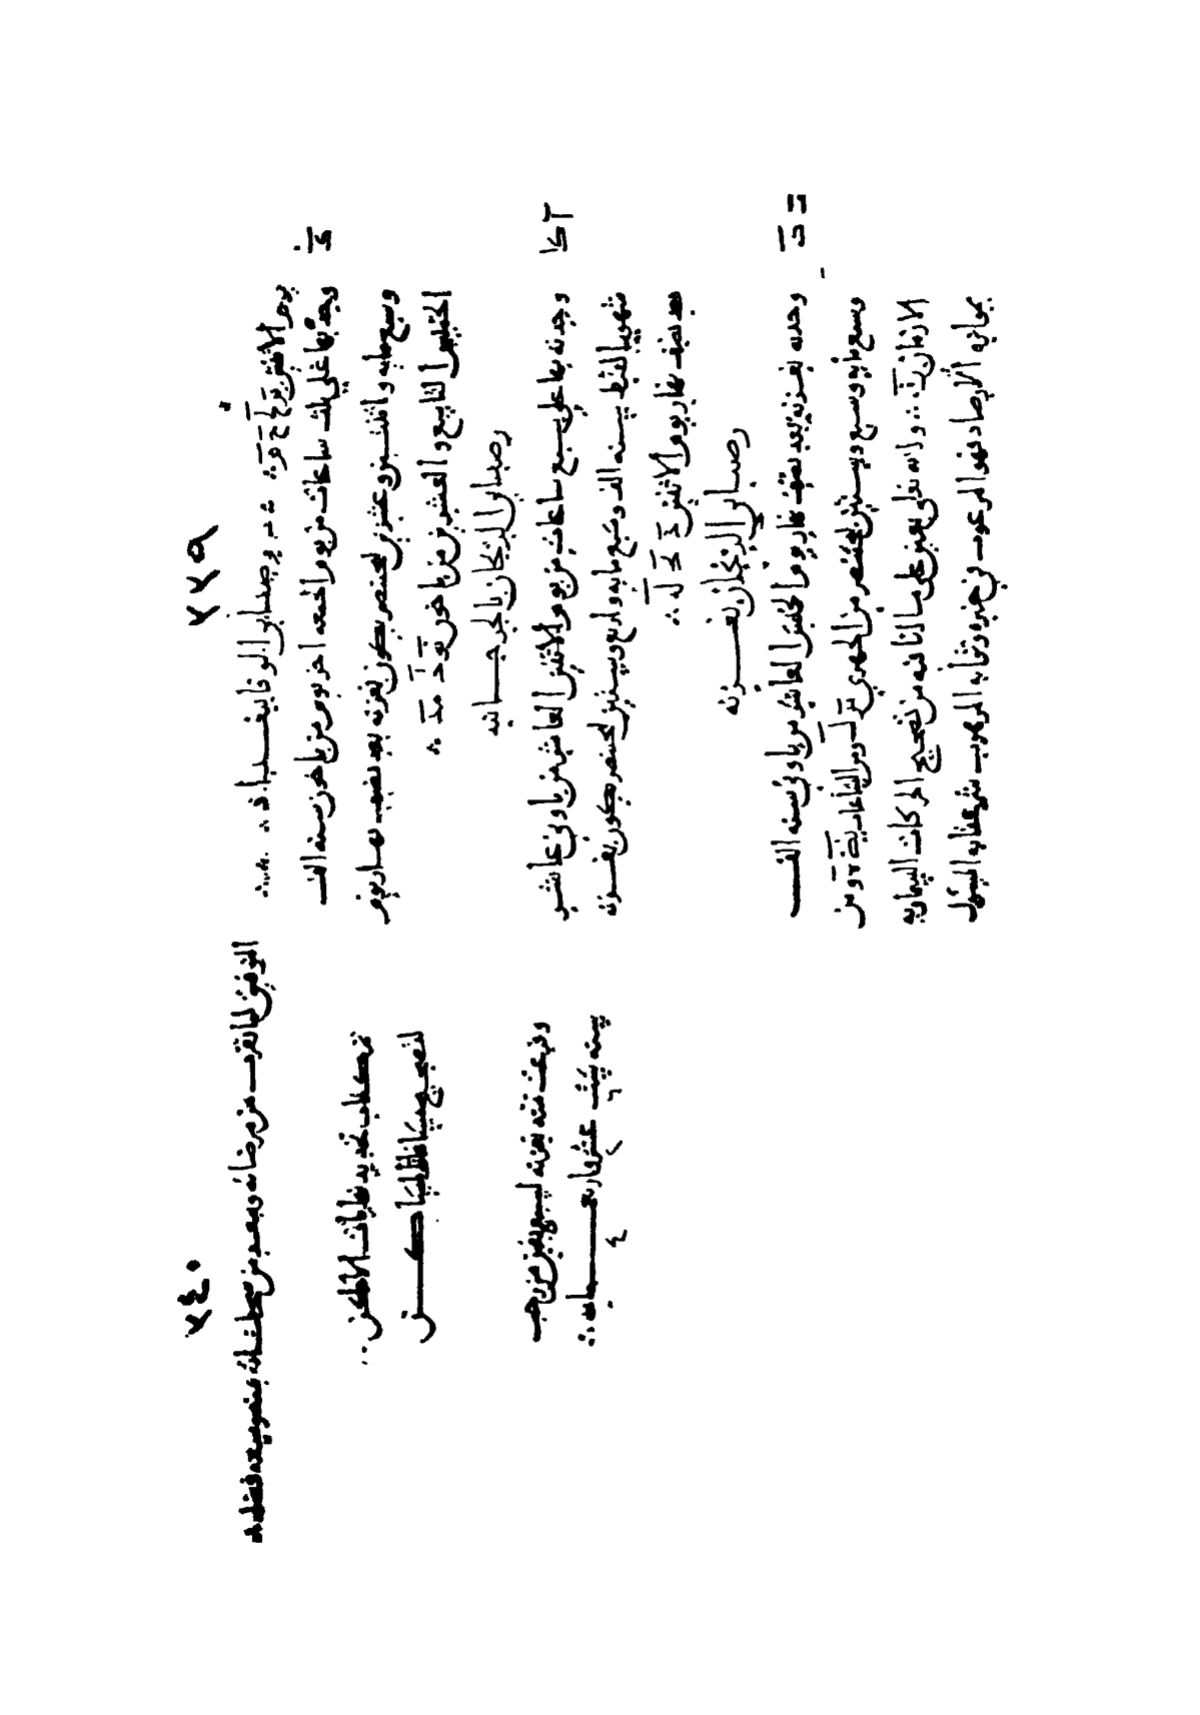 ٣٣٩
يوم الاثنين
رصد ابو الوفا ببغداد
وجد بها على ثلث ساعات من يوم الجمعه آخر يوم من باخون سنه الف
وسبع مايه و اثنتين وعشرين لبختنصر يكون بغزنه بعد نصف نهار يوم
الخميس التاسع والعشرين من باخون
رصد ابو الريحان بالجرجانيه
وجدته بها على سبع ساعات من يوم الاثنين العاشر من باونى عاشر
شهور القبط سنه الف وسبع مايه واربع وستين لبختنصر يكون بغزنه
بعد نصف نهار يوم الاثنين
رصد ابو الريحان بغزنه
وجدته بغزنه بعد نصف نهار يوم الخميس العاشر من باونى سنه الف
وسبع مايه وسبع وستين لبختنصر من الشهور ومن الساعات ومن
الازمان والله تعالى يعين على ما لنا فيه من تصحيح الحركات السماويه
بموازيه الارصاد فهو المرغوب في خيره وثوابه المرهوب شر عقابه المسؤل
٣٤٠
التوفيق لما يقرب من مرضاته ويبعد من سخطه انه بخصوصيته وفضله
تم كتاب تحديد نهايات الاماكن
لتصحيح مسافات المساكن
وفرغت منه بغزنه لسبع بقين من رجب
سنه ست عشر واربع مايه
٤ ٦